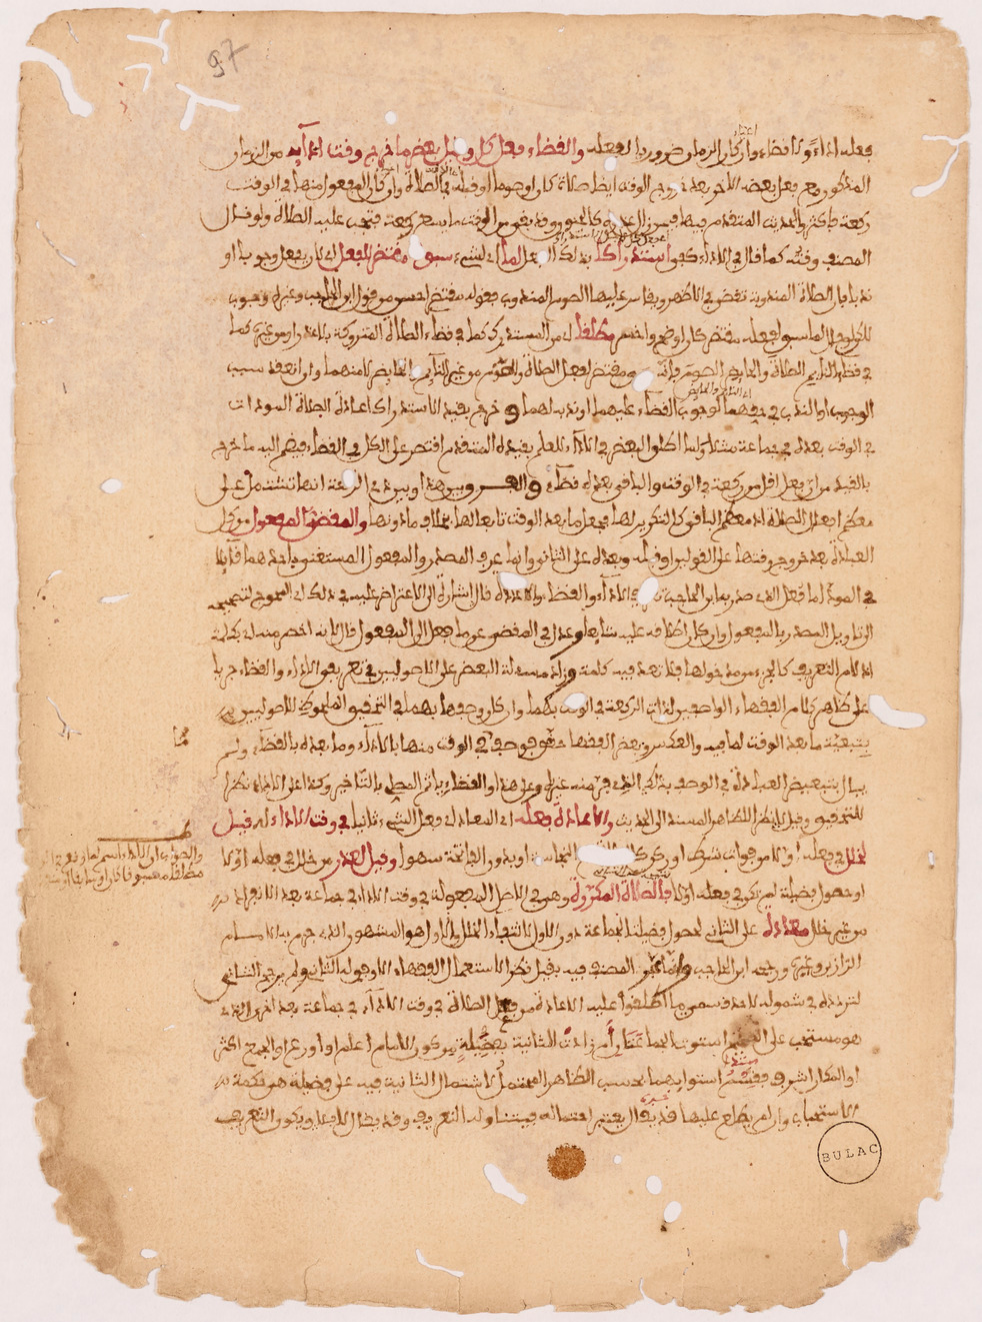 97
فعله اداء ولا قضاء وان كان الزمان ضروريا لفعله والقضاء فعل كل وقيل بعض ما خرج وقت ادايه من الزمان
المذكور مع فعل بعضه الاخر بعد خروج الوقت ايضا صلاة كان او صوما او قبله في الصلاة وان كان المفعول منها في الوقت
ركعة فاكثر والحديث المتقدم فيها فيمن زال عذره كالجنون وقد بقي من الوقت ما يسع ركعة فتجب عليه الصلاة ولو قال
المصنف وقته كما قال في الاداء كفى استدراكا بذلك الفعل لما اي لشيء سبق له مقتض للفعل اي لان يفعل وجوبا او
ندبا فان الصلاة المندوبة تقضى في الاظهر ويقاس عليها الصوم المندوب فقوله مقتض احسن من قول ابن الحاجب وغيره وجوب
لكن لو قال لما سبق لفعله مقتض كان اوضح واخصر مطلقا اي من المستدرك كما في قضاء الصلاة المتروكة بلا عذر او من غيره كما
في قضاء النايم الصلاة والحايض الصوم فانه سبق مقتض لفعل الصلاة والصوم من غير النايم والحايض لا منهما وان انعقد سبب
الوجوب او الندب في حقهما لوجوب القضاء عليهما او ندبه لهما وخرج بقيد الاستدراك اعادة الصلاة الموداة
في الوقت بعده في جماعة مثلا ولما اطلق البعض في الاداء للعلم بقيده المتقدم اقتصر على الكل في القضاء فيضم اليه ما خرج
بالقيد من ان فعل اقل من ركعة في الوقت والباقي بعده قضاء والفرق بين هذا وبين ذي الركعة انها تشتمل على
معظم افعال الصلاة اذ معظم الباقي كالتكرير لها فجعل ما بعد الوقت تابعا لها بخلاف ما دونها والمقضي المفعول من كل
العبادة بعد خروج وقتها على القولين او قبله وبعده على الثاني وانما عرف المصدر والمفعول المستغني باحدهما قايلا
في المودى ما فعل الذي صدر به ابن الحاجب تعريفي الاداء والقضاء والاعادة قال اشارة الى الاعتراض عليه في ذلك اي المحوج لتصحيحه
الى تاويل المصدر بالمفعول وان كان اطلاقه عليه شايعا وعدل في المقضي عن ما فعل الى المفعول قال لانه اخصر منه اي بكلمة
اذ لام التعريف كالجزء من مدخولها فلا تعد فيه كلمة وزاد مسئلة البعض على الاصوليين في تعريفي الاداء والقضاء جريا
على ظاهر كلام الفقهاء الواصفين لذات الركعة في الوقت بهما وان كان وصفها بهما في التحقيق الملحوظ للاصوليين
بتبعية ما بعد الوقت لما فيه والعكس وبعض الفقهاء حقق فوصف ما في الوقت منها بالاداء وما بعده بالقضاء ولم
يبال بتبعيض العبادة في الوصف بذلك الذي فر منه غيره وعلى هذا والقضاء ياثم المصلي بالتاخير وكذا على الاداء نظرا
للتحقيق وقيل لا نظرا للظاهر المستند الى الحديث والاعادة فعله اي المعاد اي فعل الشيء ثانيا في وقت الاداء له قيل
لخلل في فعله اولا من فوات شرط او ركن كالصلاة مع النجاسة او بدون الفاتحة سهوا وقيل لعذر من خلل في فعله اولا
او حصول فضيلة لم تكن في فعله اولا فالصلاة المكررة وهي في الاصل المفعولة في وقت الاداء في جماعة بعد الانفراد
من غير خلل معادة على الثاني لحصول فضيلة الجماعة دون الاول لانتفاء الخلل والاول هو المشهور الذي جزم به الامام
الرازي وغيره ورجحه ابن الحاجب وانما عبر المصنف فيه بقيل نظرا لاستعمال الفقهاء الاوفق له الثاني ولم يرجح الثاني
لتردده في شموله لاحد قسمي ما اطلقوا عليه الاعادة من فعل الصلاة في وقت الاداء في جماعة بعد اخرى الذي
هو مستحب على الصحيح استوت الجماعتان ام زادت الثانية بفضيلة من كون الامام اعلم او اورع او الجمع اكثر
او المكان اشرف فقسم استوايهما بحسب الظاهر المحتمل لاشتمال الثانية فيه على فضيلة هي حكمة
الاستحباب وان لم يطلع عليها قد يقال يعتبر احتماله فيتناوله التعريف وقد يقال لا فلا ويكون التعريف
BULAC